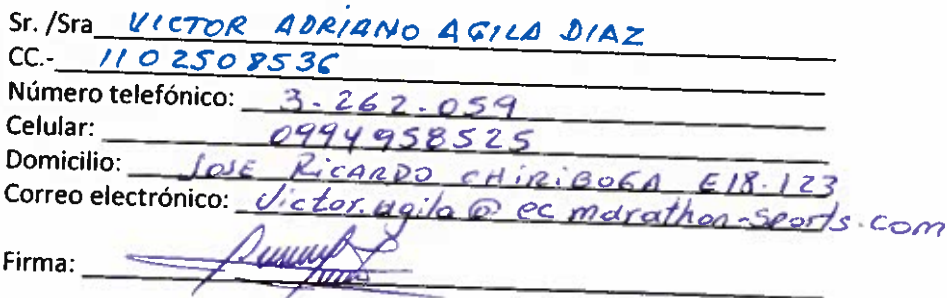 Sr. /Sra VICTOR ADRIANO AGILA DIAZ
CC.- 1102508536
Número telefónico: 3-262-059
Celular: 0994958525
Domicilio: JOSE RICARDO CHIRIBOGA E18-123
Correo electrónico: Victor.agila@ec.marathon-sports.com
Firma: